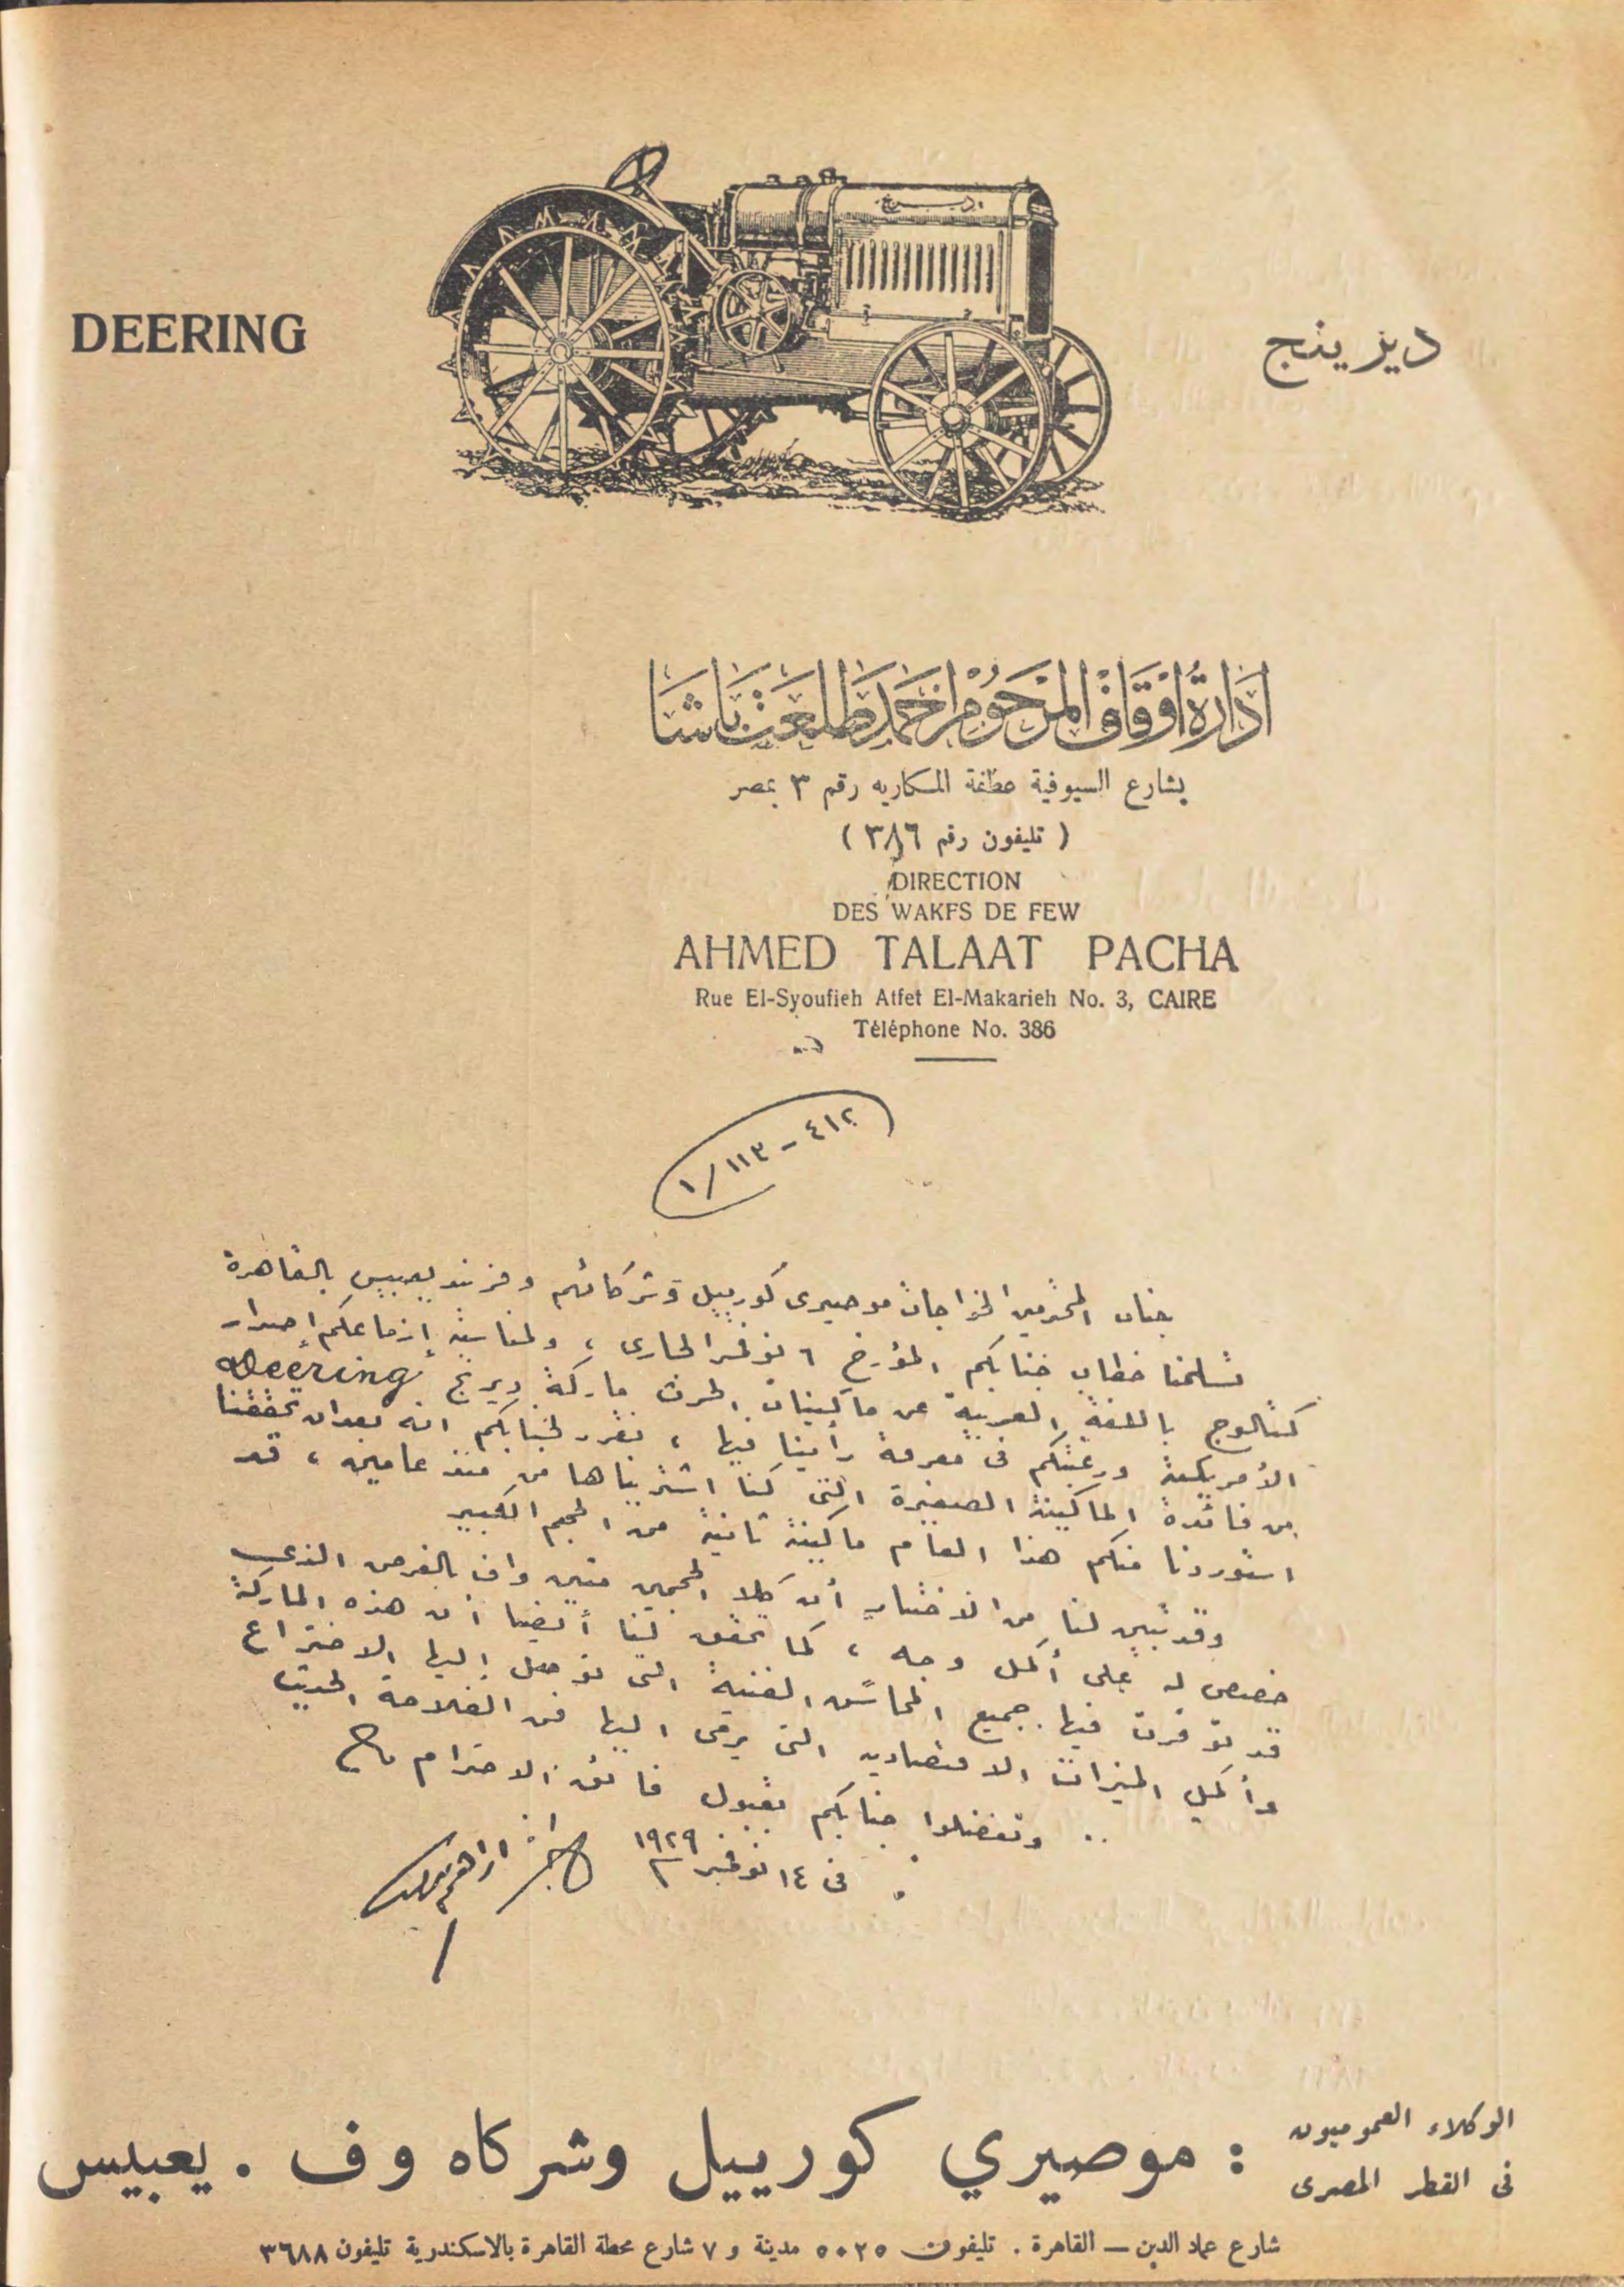 DEERING
ديرينج
ديرينج
ادارة اوقاف المرحوم احمد طلعت باشا
بشارع السيوفية عطفة المكاريه رقم ٣ بمصر
( تليفون رقم ٣٨٦ )
DIRECTION
DES WAKFS DE FEW
AHMED TALAAT PACHA
Rue El-Syoufieh Atfet El-Makarieh No. 3, CAIRE
Téléphone No. 386
٤١٢ - ١١٣ / ١
جناب المحترمين الخواجات موصيرى كورييل وشركائهم وفرند يعبيس بالقاهرة
تسلمنا خطاب جنابكم المؤرخ ٦ نوفمبر الجارى ، ولمناسبة إزماعكم إصدار
كتالوج باللغة العربية عن ماكينات الحرث ماركة ديرنج Deering
الأمريكية ورغبتكم فى معرفة رأينا فيها ، نقرر لجنابكم انه بعد ان تحققنا
من فائدة الماكينة الصغيرة التى كنا اشتريناها من منذ عامين ، قد
استوردنا منكم هذا العام ماكينة ثانية من الحجم الكبير
وقد تبين لنا من الاختبار أن كلا الحجمين متين واف بالغرض الذى
خصص له على أكمل وجه ، كما تحقق لنا أيضا أن هذه الماركة
قد توفرت فيها جميع المحاسن الفنية التى توصل اليها الاختراع
وأكمل الميزات الاقتصاديه التى يرمى اليها فن الفلاحة الحديث
وتفضلوا جنابكم بقبول فائق الاحترام
فى ١٤ نوفمبر ١٩٢٩
الوكلاء العموميون
فى القطر المصرى
: موصيري كورييل وشركاه وف . يعبيس
شارع عماد الدين — القاهرة . تليفون ٥٠٢٥ مدينة و ٧ شارع محطة القاهرة بالاسكندرية تليفون ٣٦٨٨